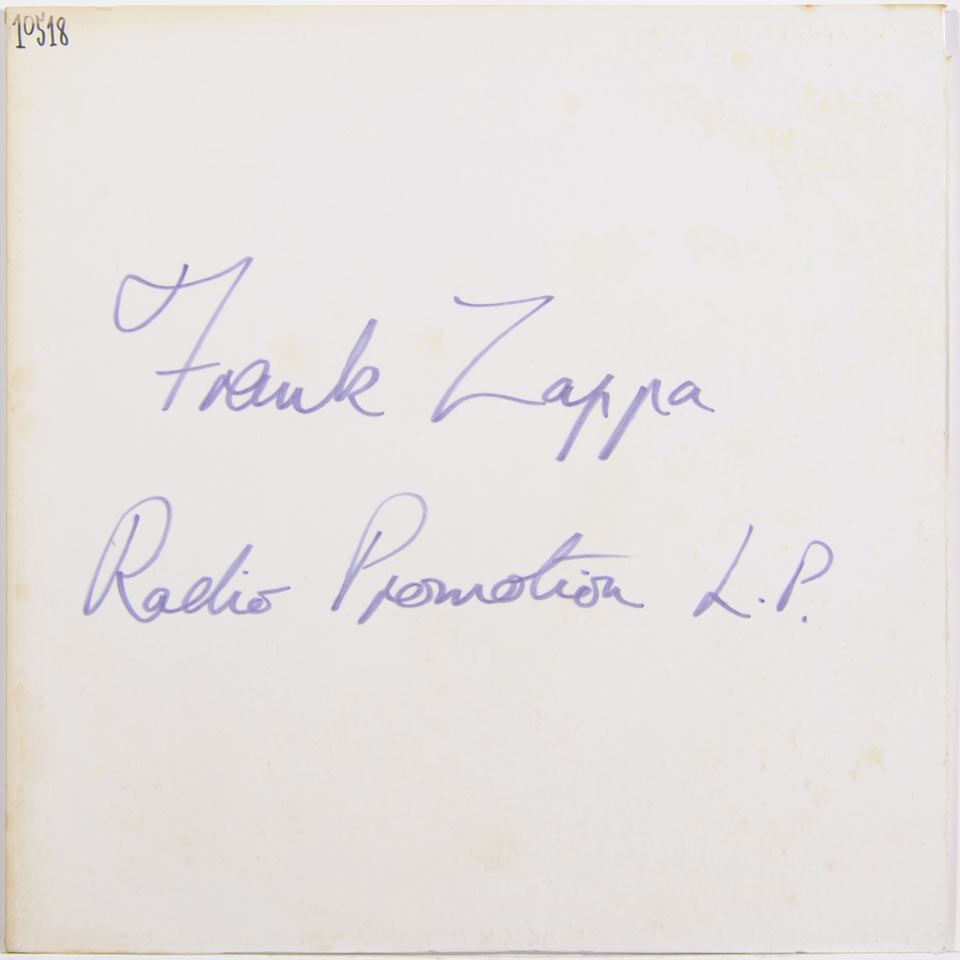 10518
Frank Zappa
Radio Promotion L.P.